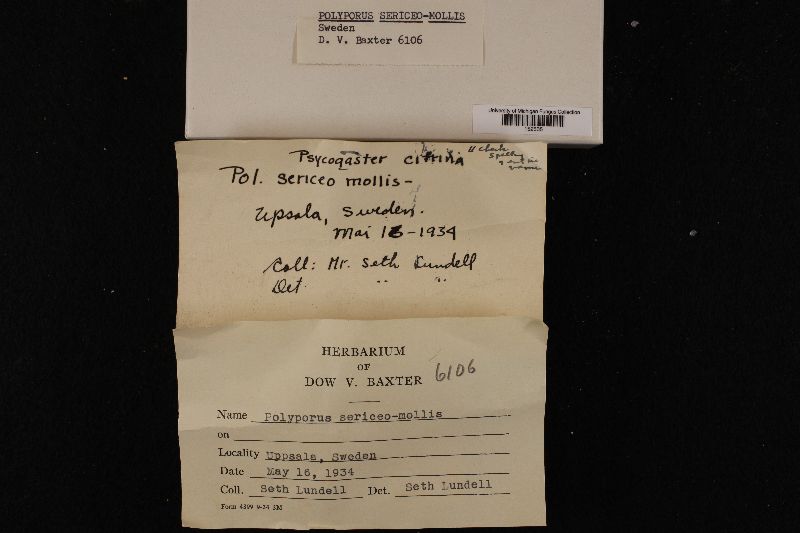 POLYPORUS SERICEO-MOLLIS
Sweden
D. V. Baxter 6106
University of Michigan Fungus Collection
Psycogaster citrina
check
Pol. sericeo mollis -
Upsala, Sweden.
Mai 16 - 1934
Coll: Mr. Seth Lundell
Det. " "
HERBARIUM
OF
DOW V. BAXTER
6106
Name Polyporus sericeo-mollis
on
Locality Uppsala, Sweden
Date May 16, 1934
Coll. Seth Lundell Det. Seth Lundell
Form 4399 9-34 5M